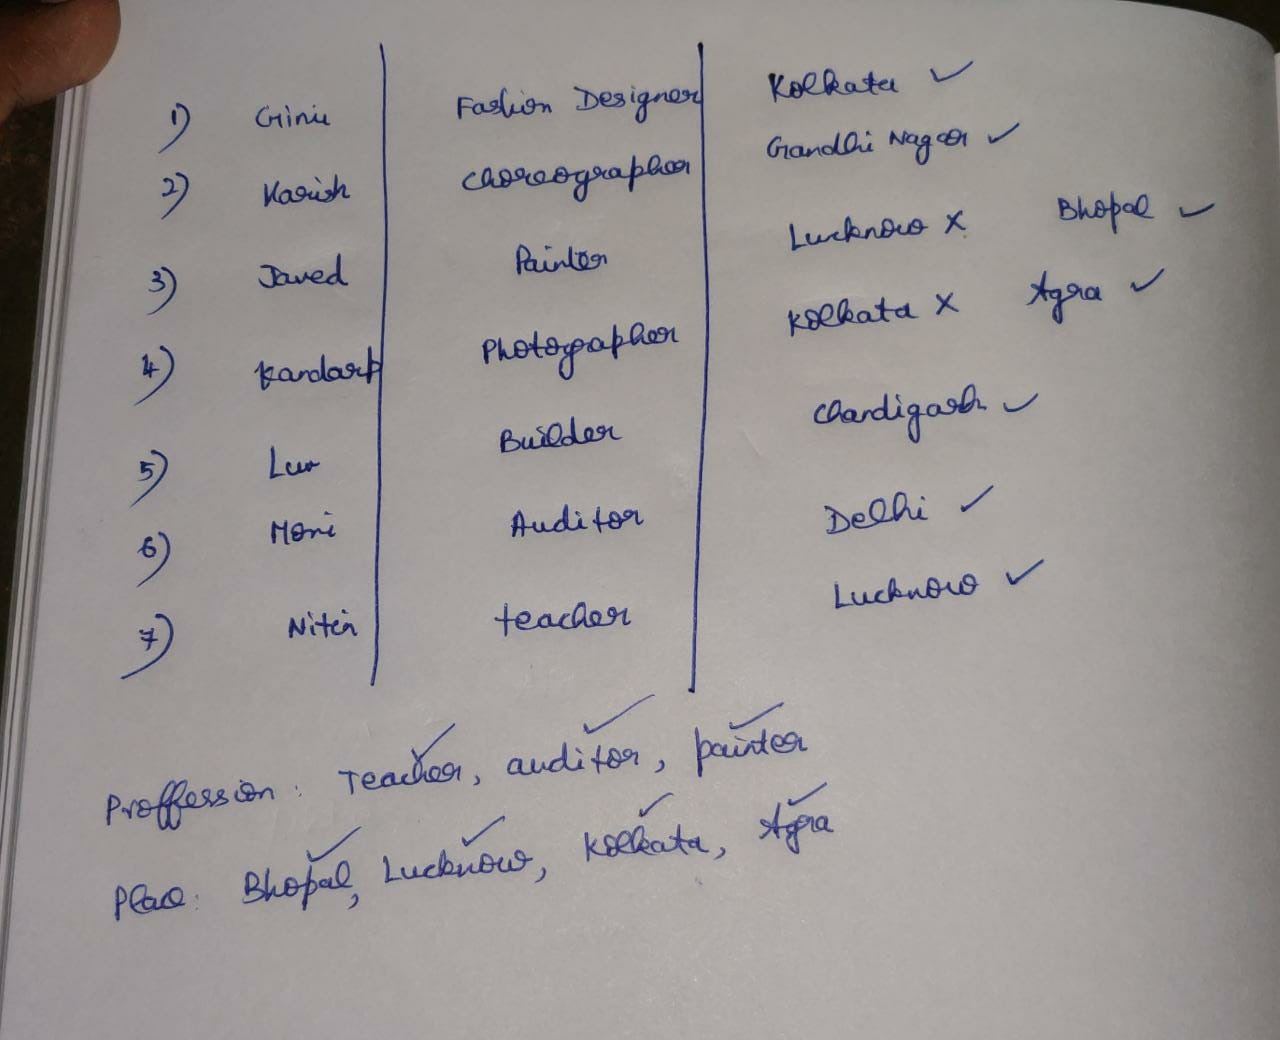 1) Ginu Fashion Designer Kolkata ✓
2) Harish Choreographer Gandhi Nagar ✓
3) Javed Painter Lucknow × Bhopal ✓
4) Kandarp Photographer Kolkata × Agra ✓
5) Luv Builder Chandigarh ✓
6) Moni Auditor Delhi ✓
7) Nitin teacher Lucknow ✓
Proffession: Teacher, auditor, painter
Place: Bhopal, Lucknow, Kolkata, Agra